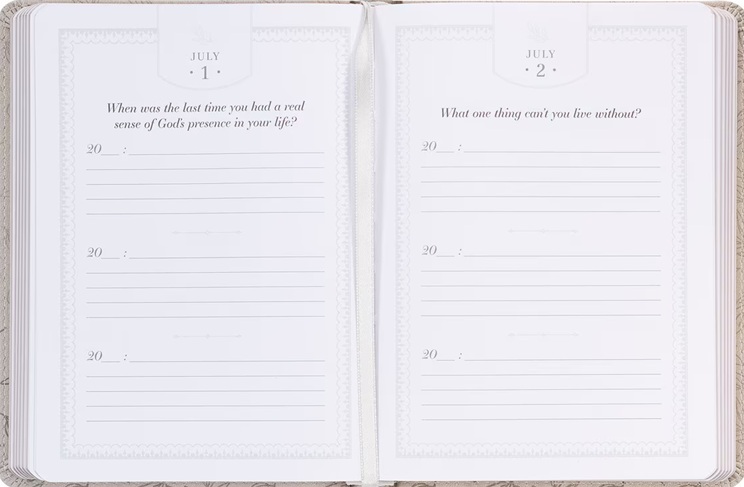 JULY
• 1 •
When was the last time you had a real
sense of God's presence in your life?
20___ :
20___ :
20___ :
JULY
• 2 •
What one thing can't you live without?
20___ :
20___ :
20___ :